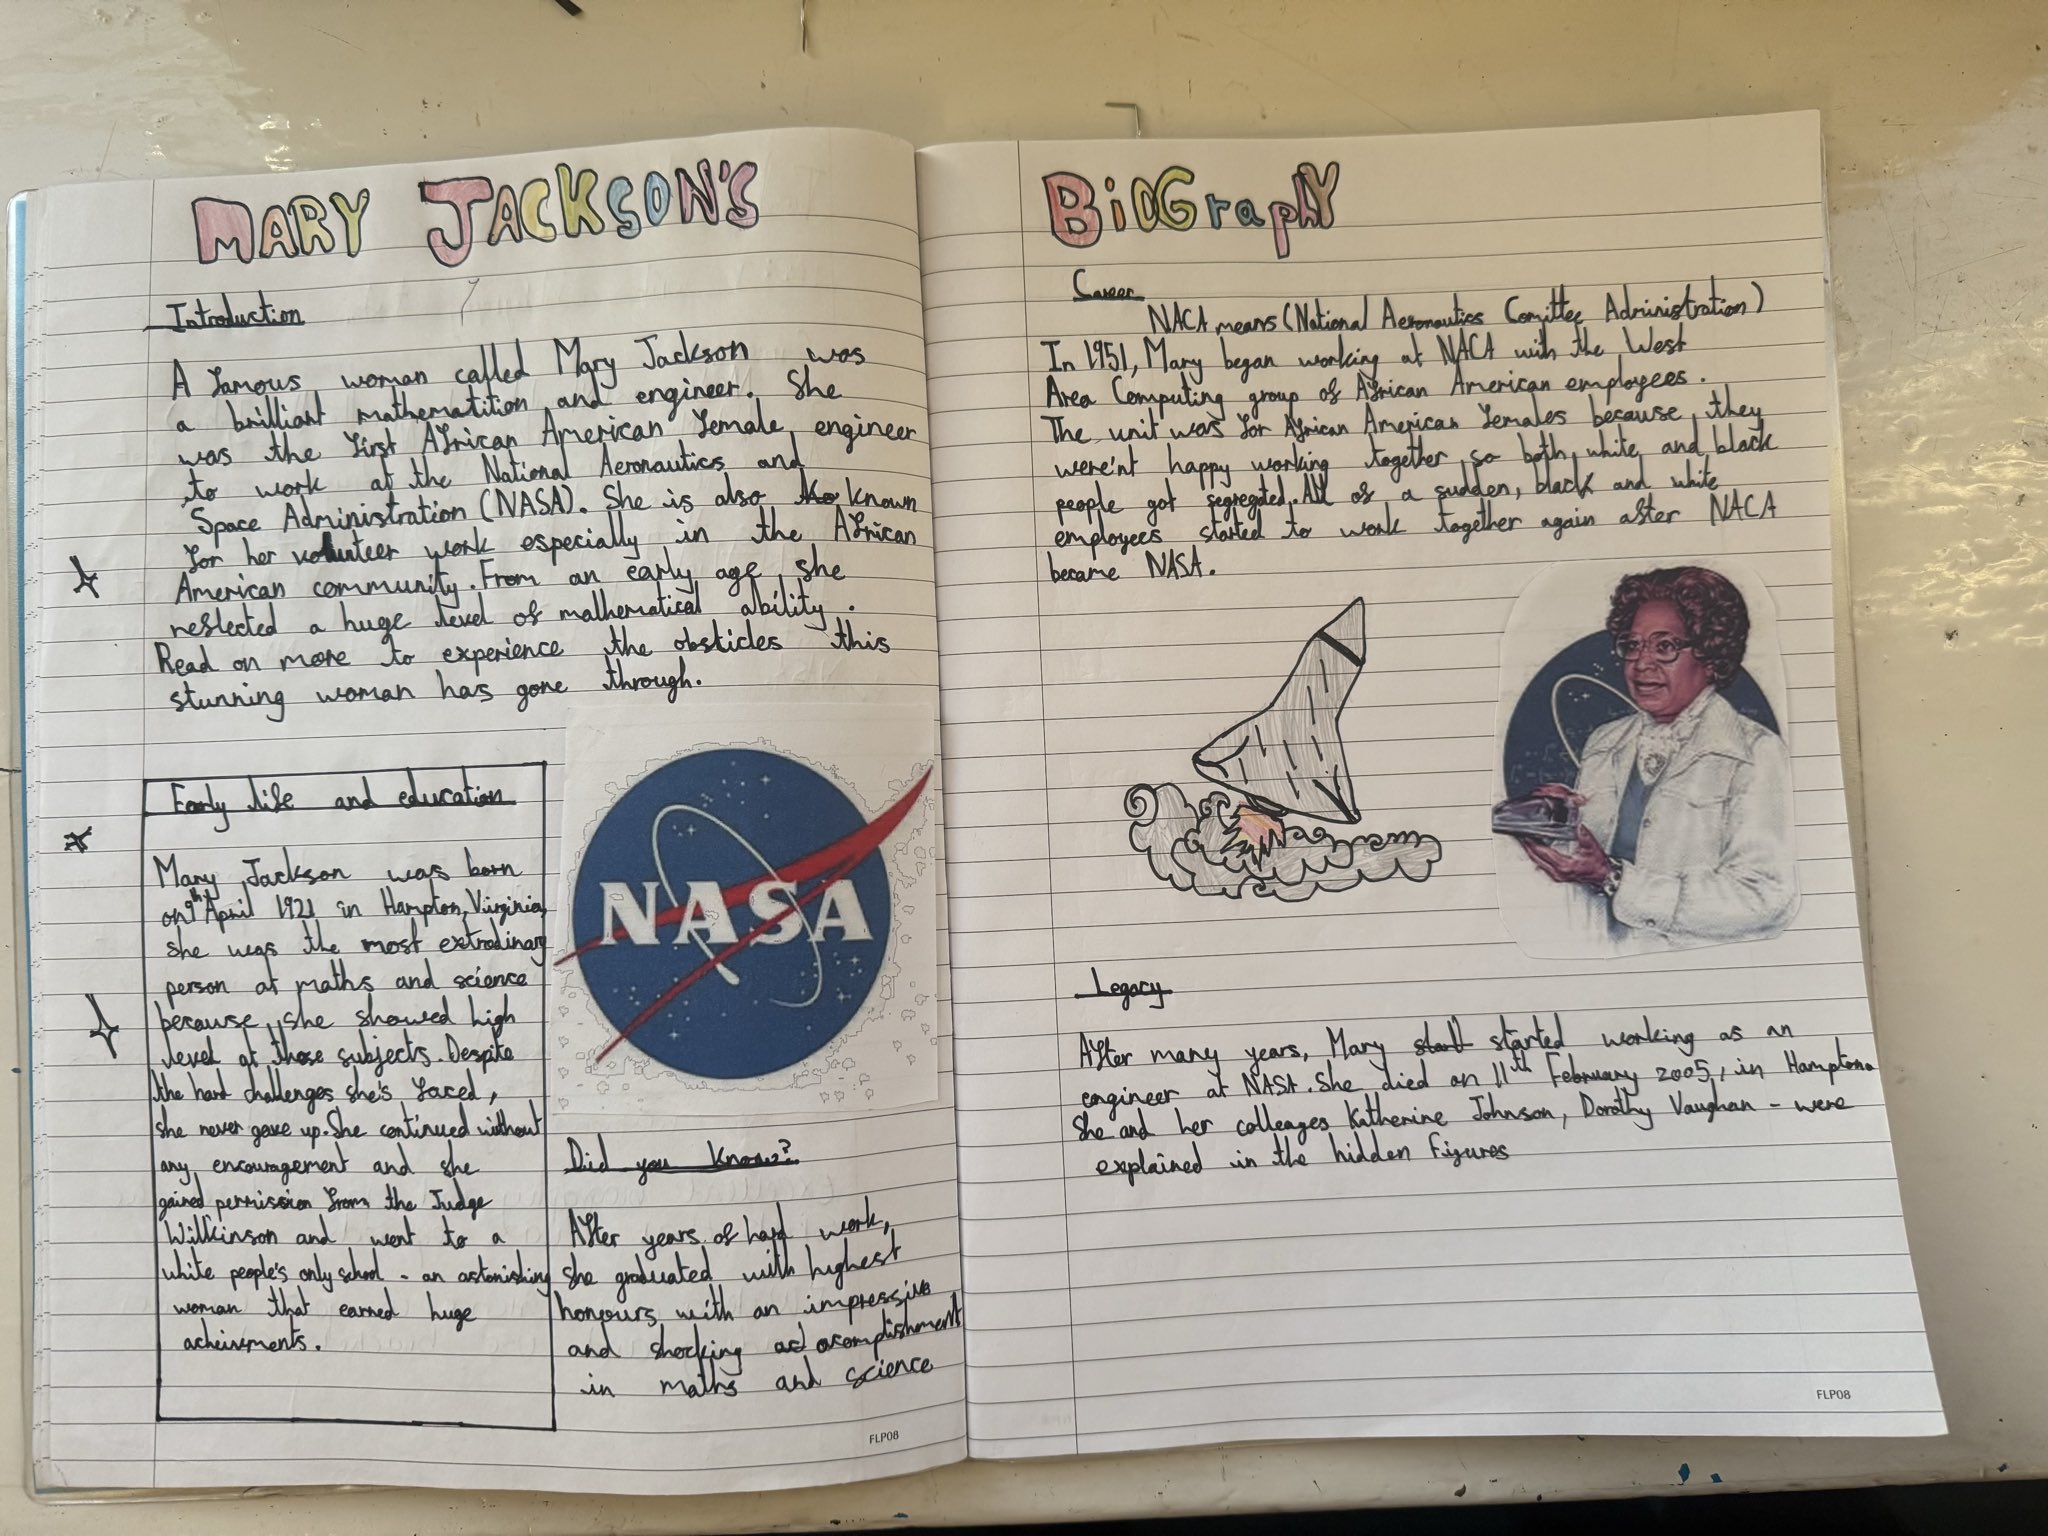 MARY JACKSON'S
Introduction
A famous woman called Mary Jackson was
a brilliant mathematition and engineer. She
was the first African American female engineer
to work at the National Aeronautics and
Space Administration (NASA). She is also known
for her volunteer work especially in the African
American community. From an early age, she
reflected a huge level of mathematical ability.
Read on more to experience the obsticles this
stunning woman has gone through.
Early life and education
Mary Jackson was born
on 9th April 1921 in Hampton, Virginia,
she was the most extrodinary
person at maths and science
because, she showed high
level at those subjects. Despite
the hard challenges she's faced,
she never gave up. She continued without
any encouragement and she
gained permission from the Judge
Wilkinson and went to a
white people's only school - an astonishing
woman that earned huge
acheivments.
NASA
Did you know?
After years of hard work,
she graduated with highest
honours with an impressive
and shocking acomplishment
in maths and science
FLP08
BiOGraphY
Career
NACA means (National Aeronautics Comittee Administration)
In 1951, Mary began working at NACA with the West
Area Computing group of African American employees.
The unit was for African American females because they
weren't happy working together so both white and black
people got segregated. All of a sudden, black and white
employees started to work together again after NACA
became NASA.
Legacy
After many years, Mary started working as an
engineer at NASA. She died on 11th February 2005, in Hampton.
She and her colleages Katherine Johnson, Dorothy Vaughan - were
explained in the hidden Figures
FLP08